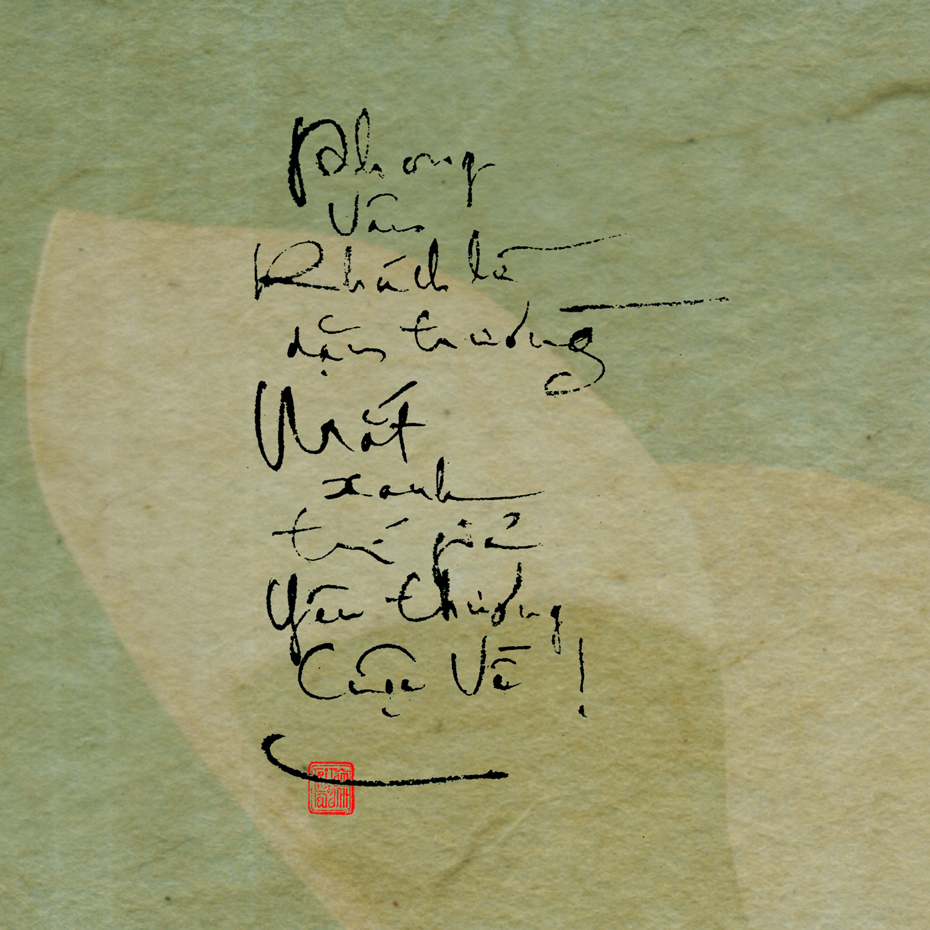 Phong
Vân
Khách lữ
dặm trường
Mắt
xanh
trú giả
Yêu thương
Cuộn Về !